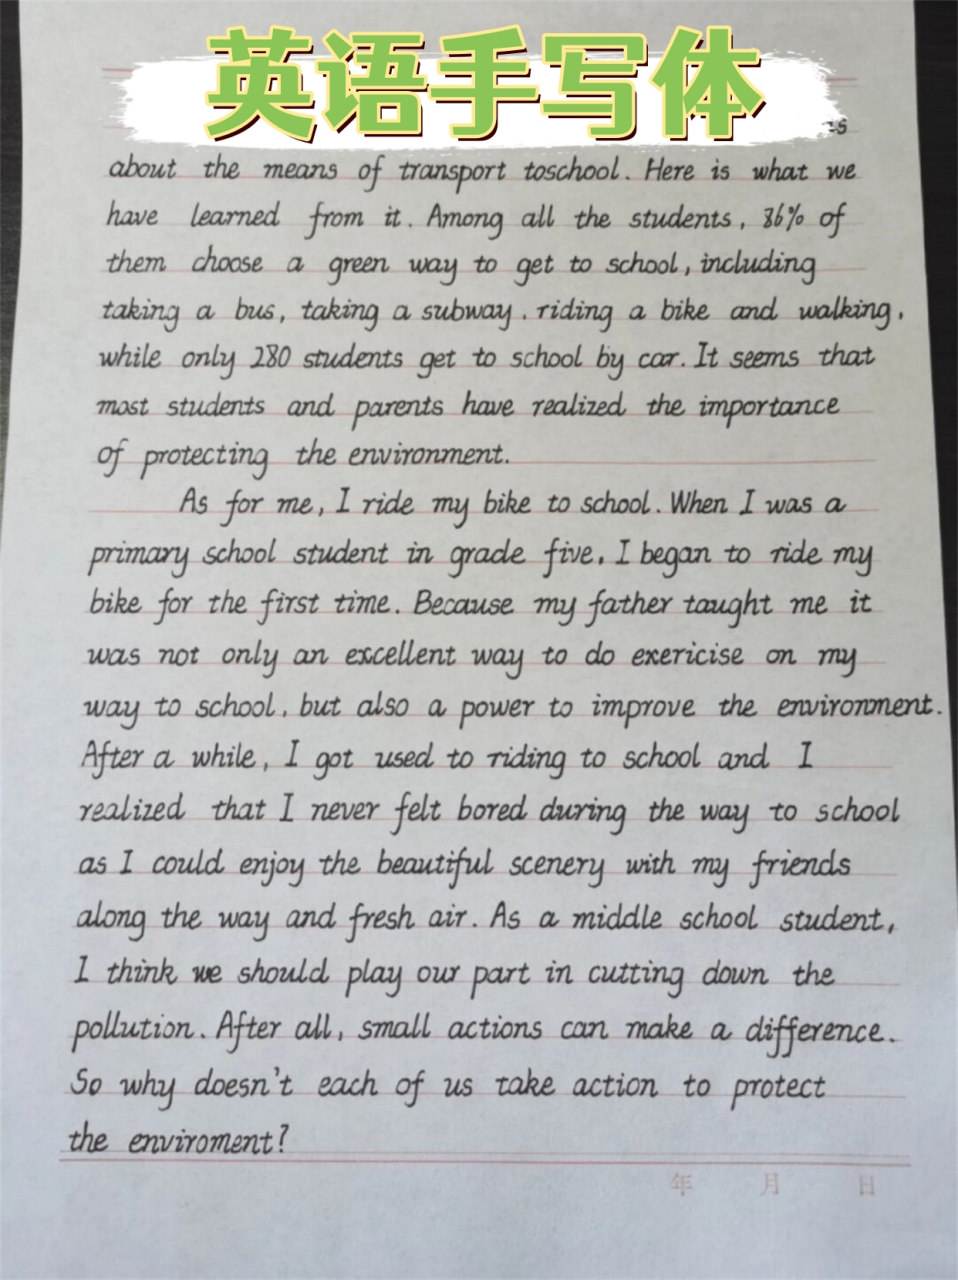 英语手写体
about the means of transport toschool. Here is what we
have learned from it. Among all the students, 86% of
them choose a green way to get to school, including
taking a bus, taking a subway. riding a bike and walking,
while only 280 students get to school by car. It seems that
most students and parents have realized the importance
of protecting the environment.
As for me, I ride my bike to school. When I was a
primary school student in grade five, I began to ride my
bike for the first time. Because my father taught me it
was not only an excellent way to do exericise on my
way to school, but also a power to improve the environment.
After a while, I got used to riding to school and I
realized that I never felt bored during the way to school
as I could enjoy the beautiful scenery with my friends
along the way and fresh air. As a middle school student,
I think we should play our part in cutting down the
pollution. After all, small actions can make a difference.
So why doesn't each of us take action to protect
the enviroment?
年 月 日